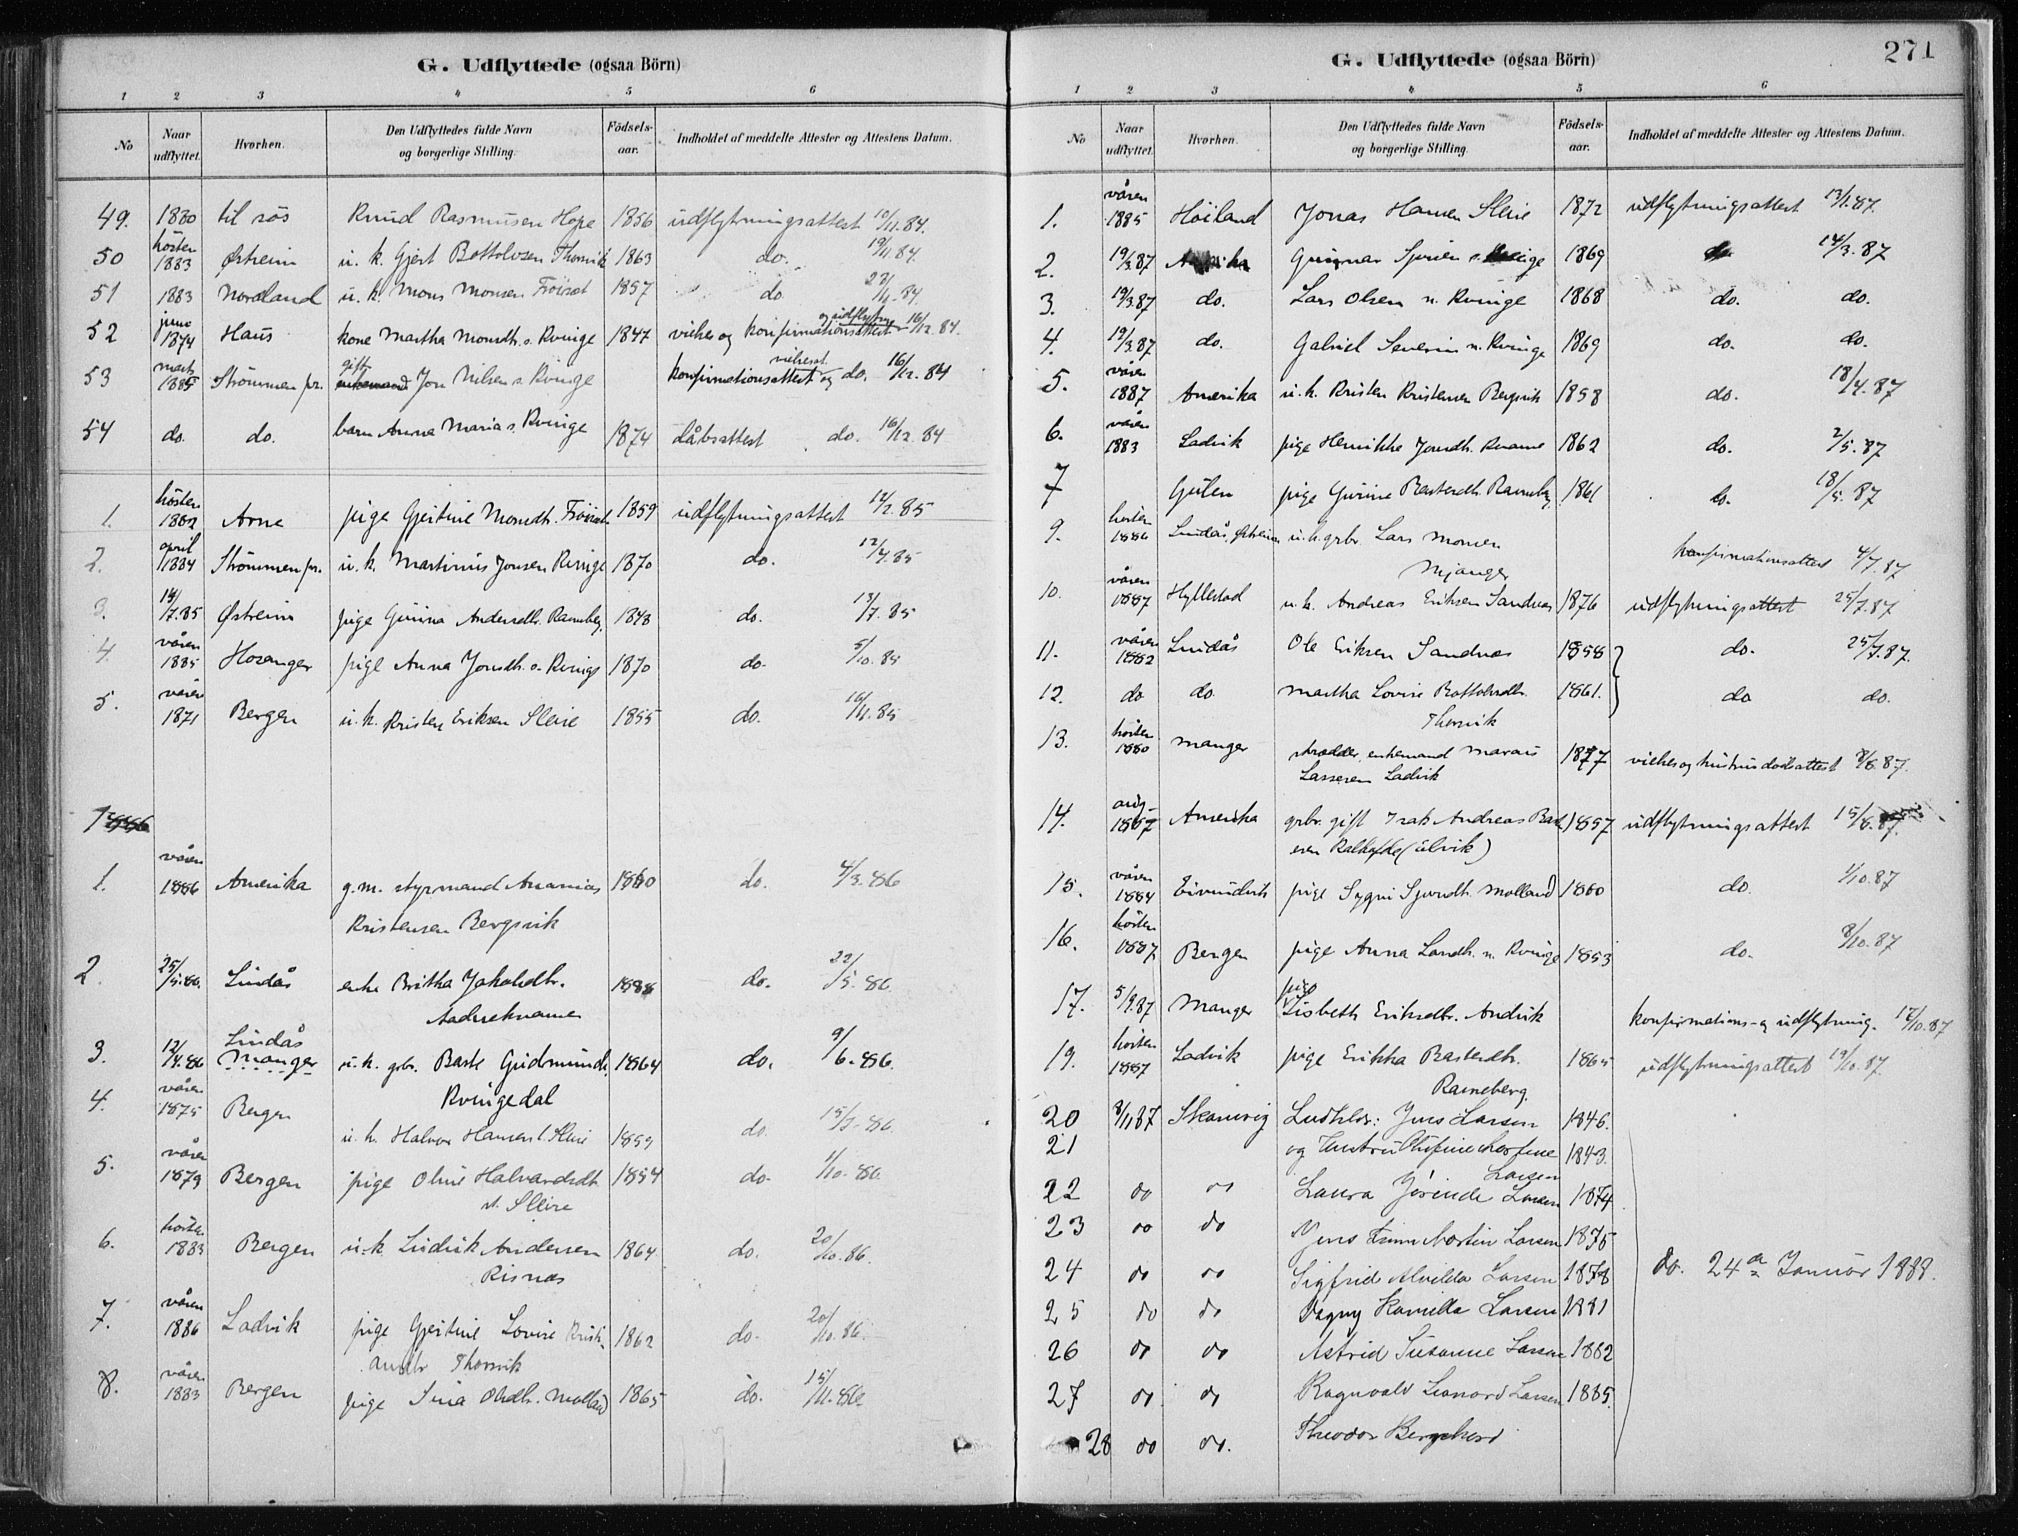 G. Udflyttede (ogsaa Börn)
1 2 3 4 5 6
No Naar udflyttet. Hvorhen. Den Udflyttedes fulde Navn og borgerlige Stilling. Födsels-aar. Indholdet af meddelte Attester og Attestens Datum.
49. 1880 til søs Knud Rasmusen Hope 1856 udflytningsattest 10/11.84.
50 hösten 1883 Østreim u. k. Gjert Bottolvsen Thorsvik 1863 do. 19/11.84.
51 1883 Nordland u. k. Mons Monsen Fröiset 1857 do 23/11.84.
52 juni 1874 Haus kone Martha Monsdtr. s. Kvinge 1847 vielses og konfirmationsattest og udflytn 16/12.84.
53 marts 1885 Strömmen pr. gift Jon Nilsen s. Kvinge konfirmationsattest vielsesst og do. 16/12.84
54 do. do. barn Anna Maria s. Kvinge 1874 dåbsattest do. 16/12.84
1. hösten 1882 Arne pige Gjertine Monsdtr. Fröiset 1859 udflytningsattest 12/2.85
2. april 1884 Strömmen pr. u. k. Martinus Jonsen Kvinge 1870 do. 12/4.85
3. 14/7.85 Østreim pige Gurina Andersdtr. Ramsberg 1848 do. 13/7.85
4. våren 1885 Hosanger pige Anna Jonsdtr. s. Kvinge 1870 do. 5/10.85
5. våren 1871 Bergen u. k. Kristen Eriksen Sleire 1855 do. 16/11.85
1886
1. våren 1886 Amerika g.m. styrmand Ananias 1860 do. 4/3.86
Kristensen Bergsvik
2. 25/5.86. Lindås enke Britha Jakobdtr. 1838 do. 22/5.86
3. 12/4.86 Lindås Manger u. k. gbr. Baste Gudmunds. 1864 do. 9/6.86.
Kvingedal
4. våren 1875 Bergen u. k. Halvor Hansen l. Sleire 1859 do. 15/7.86.
5. våren 1879 Bergen pige Oline Halvardsdt 1854 do. 1/10.86.
st. Sleire
6. hösten 1883 Bergen u. k Ludvik Andersen 1864 do. 20/10.86.
Risnæs
7. våren 1886 Ladvik pige Gjertine Lovise Krist- 1862 do. 20/10.86.
iansdtr Thorsvik
8. våren 1883 Bergen pige Sina Olsdtr. Molland 1865 do. 15/11.86
G. Udflyttede (ogsaa Börn) 271
1 2 3 4 5 6
No Naar udflyttet. Hvorhen. Den Udflyttedes fulde Navn og borgerlige Stilling. Födsels-aar. Indholdet af meddelte Attester og Attestens Datum.
1. våren 1885 Höiland Jonas Hansen Sleire 1872 udflytningsattest 13/1.87.
2. 19/3.87 Amerika Gunnar Sjursen s. Kvinge 1869 do 14/3.87
3. 19/3.87 do. Lars Olsen n. Kvinge 1868 do. do.
4. 19/3.87 do. Gabriel Severin n. Kvinge 1869 do. do.
5. våren 1887 Amerika u. k. Kristen Kristensen Bergsvik 1858 do. 18/4.87
6. våren 1883 Ladvik pige Henrikke Jonsdtr. Kname 1862 do. 2/5.87
7 Gulen pige Gurine Bastesdtr. Ramsberg 1861 do. 18/5.87
9. hösten 1886 Lindås, Østreim u. k. gbr. Lars Monsen
Mjanger konfirmationsattest 4/7.87
10. våren 1887 Hyllestad u. k. Andreas Eriksen Sandnæs 1876 udflytningsattest 25/7.87
11. våren 1882 Lindås Ole Eriksen Sandnæs 1858 do. 25/7.87.
12. do do. Martha Lovise Bottolvsdtr. 1861. do do.
Thorsvik
13. hösten 1880 Manger skrædder, enkemand Marcus 1827 vielses og hustrus dödsattest 8/8.87.
Lassesen Ladvik
14. aug. 1887 Amerika gbr. gift Isak Andreas Bast- 1857 udflytningsattest 15/8.87.
esen (ulvik)
15. våren 1884 Eivindvik pige Sygni Sjursdtr. Molland 1860 do. 1/10.87
16. hösten 1887 Bergen pige Anna Larsdtr. n. Kvinge 1853 do. 8/10.87
17. 5/9.87 Manger pige Lisbeth Eriksdtr. Andvik konfirmations- og udflytning. 12/10.87
19. hösten 1887 Ladvik pige Erikka Bastesdtr. 1865 udflytningsattest 19/10.87.
Ramsberg.
20 8/11 87 Skonevig Jens Larsen 1846.
21 og Hustru Olufine Lorense 1843.
Larsen
22 do do Laura Jörinde Larsen 1874
23 do do Jens Martin Larsen 1875
24 do do Sigfrid Alvilda Larsen 1878 do. 24de Januar 1888.
25 do do Dagny Kamilla Larsen 1881
26 do do Astrid Susanne Larsen 1882
27 do do Ragnvald Leonard Larsen 1885.
28 do do. Theodor